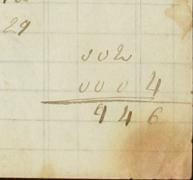 29
002
0004
946